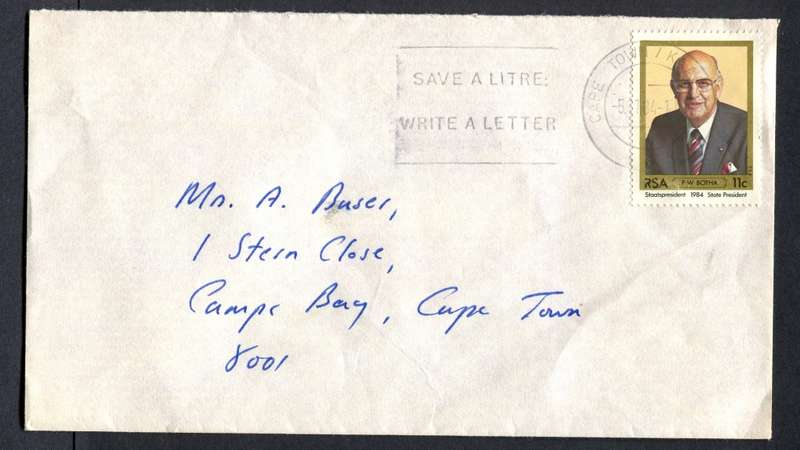 SAVE A LITRE:
WRITE A LETTER
CAPE TOWN
RSA P.W. BOTHA 11c
Staatspresident 1984 State President
Mr. A. Buser,
1 Stern Close,
Camps Bay, Cape Town
8001